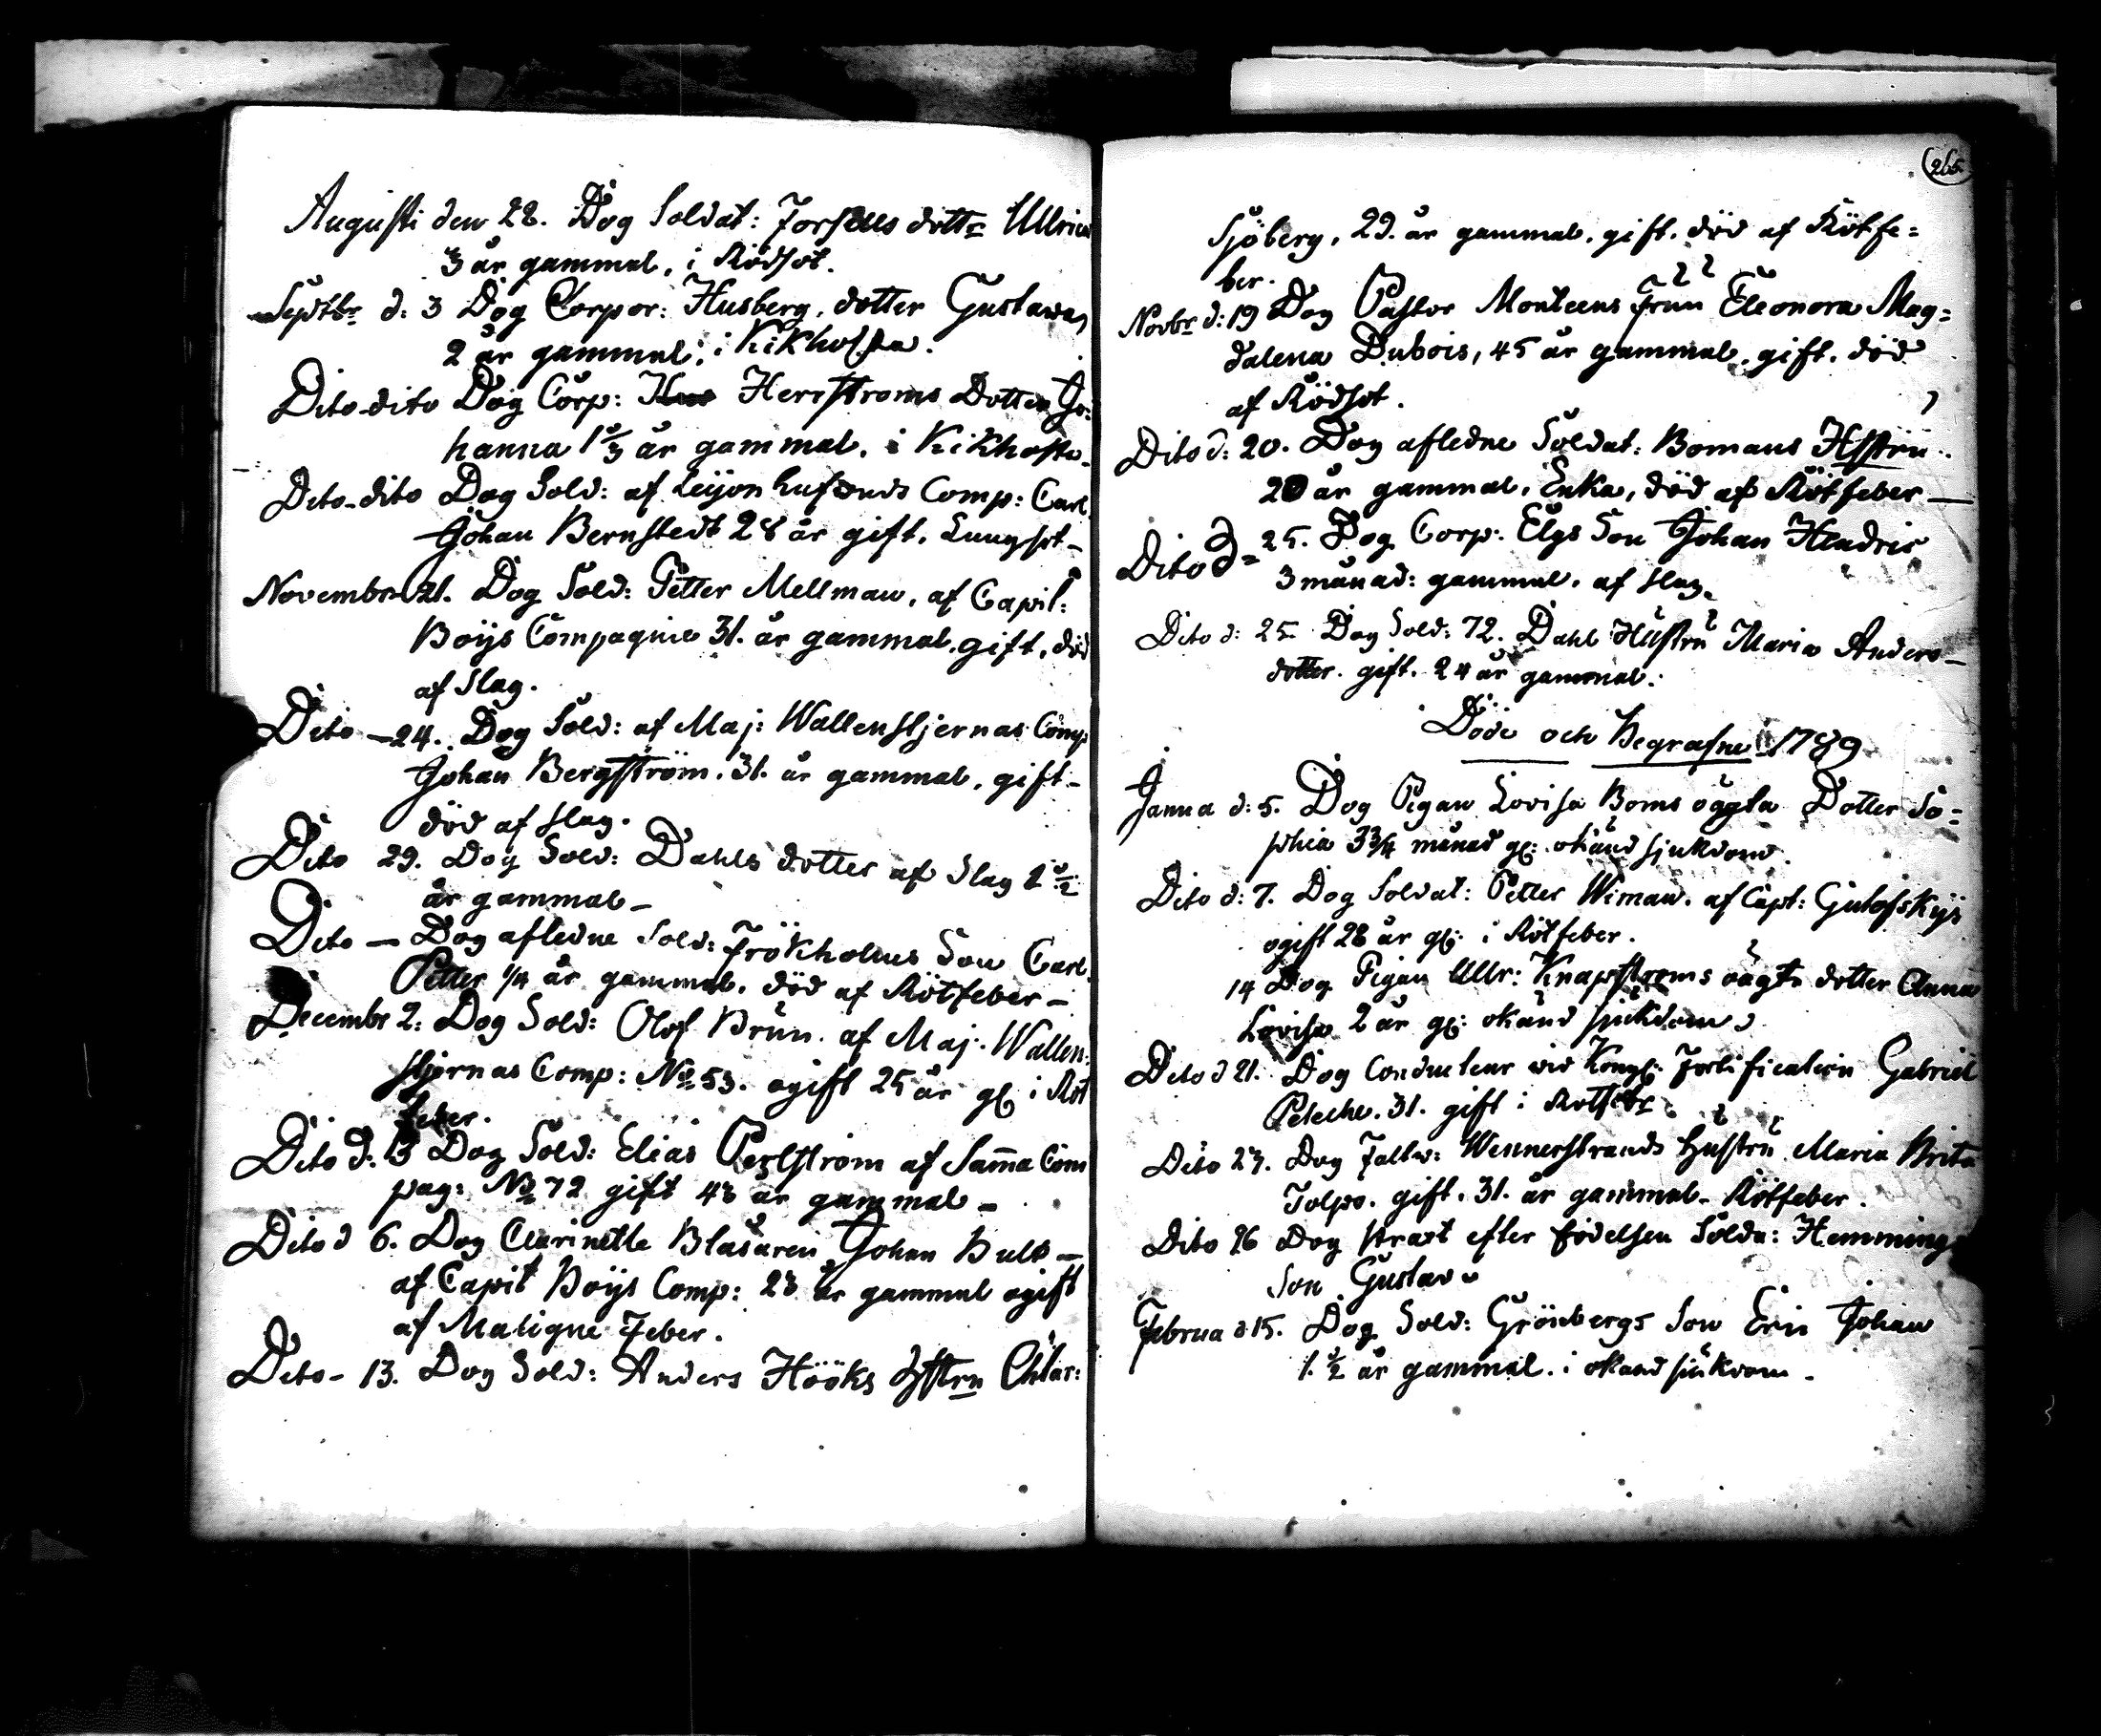 Augusti den 28. Dog Soldat: Forsells dottr Ullrica
3 år gammal, i Rödsot.
Septbr d: 3 Dog Corpor: Husberg, dotter Gustava,
2 år gammal, i Kikhosta.
Dito dito Dog Corp: Herrstroms Dotter Jo:
hanna 1 2/3 år gammal. i Kikhosta.
Dito dito Dog Sold: af Leijonhufvuds Comp: Carl
Johan Bernstedt 28 år gift. Lungsot
Novembr 21. Dog Sold: Petter Mellman, af Capit:
Boijs Compagnie 31. år gammal. gift, död
af Slag.
Dito — 24. Dog Sold: af Maj: Wallenstjernas Comp
Johan Bergström. 31. år gammal, gift
död af slag.
Dito 29. Dog Sold: Dahls dotter af Slag 1 1/2
år gammal
Dito — Dog afledne Sold: Frökholms Son Carl
Petter 1/4 år gammal. död af Rötfeber
Decembr 2: Dog Sold: Olof Brun. af Maj. Wallen:
stjernas Comp: No 53. ogift 25 år gl: i Röt
feber.
Dito d: 13 Dog Sold: Elias Perlström af Samma Com
pag: No 72 gift 43 år gammal
Dito d 6. Dog Clarinette Blåsaren Johan Hult
af Capit Boijs Comp: 23 år gammal ogift
af Maligne Feber.
Dito - 13. Dog Sold: Anders Hööks Hstru Chtar:
265
Sjöberg, 29. år gammal. gift. död af Rötfe=
ber.
Novbr d: 19 Dog Pastor Monteens Fru Eleonora Mag=
dalena Dubois, 45 år gammal. gift. död
af Rödsot.
Dito d: 20. Dog afledne Soldat: Bomans Hstru
20 år gammal, Enka, död af Rötfeber
Dito d 25. Dog Corp: Elgs Son Johan Hendric
3 månad: gammal. af slag.
Dito d: 25 Dog Sold: 72. Dahl Hustru Maria Anders
dotter. gift. 24 år gammal.
Döde och Begrafne 1789
Janua d: 5. Dog Pigan Lovisa Boms oägta Dotter So=
phia 3 3/4 månad gl: okänd sjukdom.
Dito d: 7. Dog Soldat: Petter Wiman. af Capt:
ogift 28 år gl: i Rötfeber.
14 Dog Pigan Ullr: Knapstroms oägta dotter Anna
Lovisa 2 år gl: okänd sjukdom
Dito d 21. Dog Conducteur wid Kongl: Fortification Gabriel
31. gift i Rötfebr
Dito 27. Dog Wennerstrands Hustru Maria Brita
Tolpo. gift. 31. år gammal. Rötfeber.
Dito 26 Dog strast efter födelsen Solda: Hemmings
Son Gustav
Februa d 15. Dog Sold: Grönbergs Son Eric Johan
1. 1/2 år gammal. i okänd sjukdom.